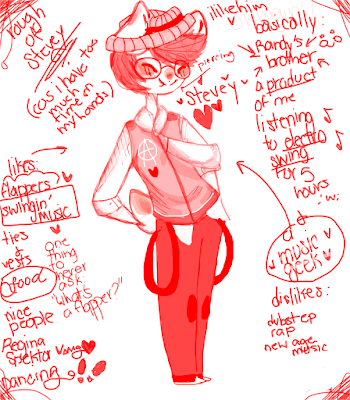 rough
one
stevey
(cos i have too
much
time on
my hands)
ilikehim
piercing
stevey
basically:
Randy's
brother
a product
of me
listening
to electro
swing
for 5
hours
'w;
likes:
flappers
swingin'
music
ties
& vests
food
nice
people
Regina
Spektor
Dancing
one
thing
to
never
ask:
"what's
a flapper?"
music
geek
dislikes:
dubstep
rap
new age
music